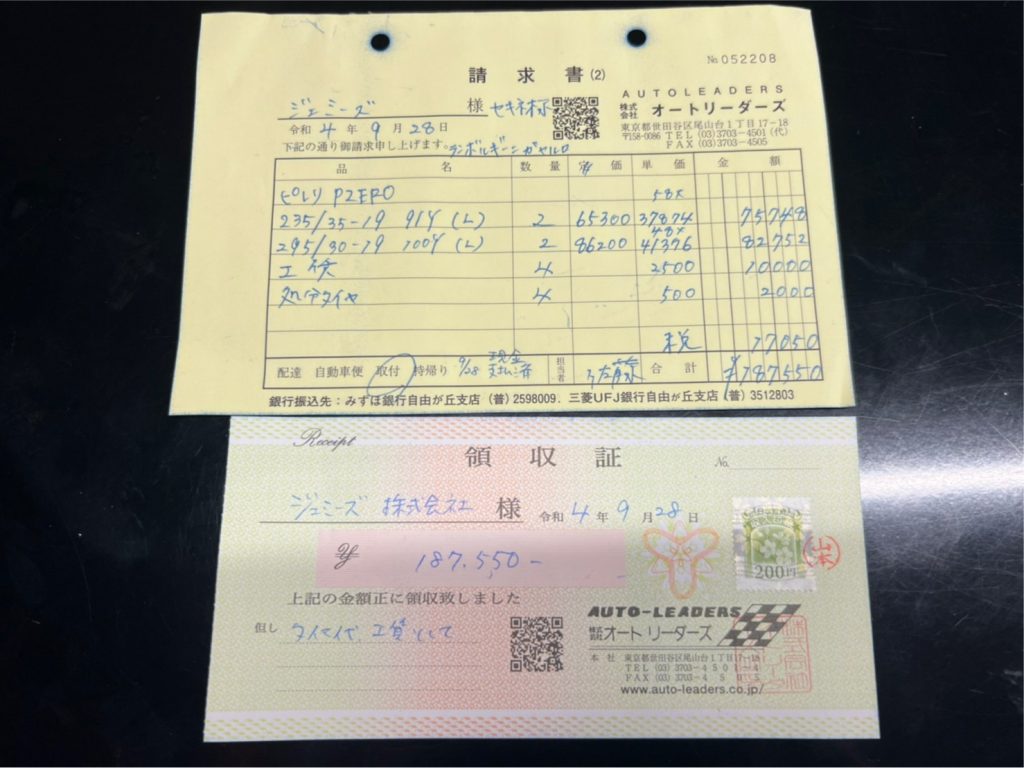 №052208
請求書(2)
AUTOLEADERS
ジェミーズ 様 セキネ様 株式会社 オートリーダーズ
東京都世田谷区尾山台1丁目17-18
令和 4 年 9 月 28 日 〒158-0086 TEL (03)3703-4501 (代)
FAX (03)3703-4505
下記の通り御請求申し上げます。ランボルギーニ ガヤルド
品名 数量 定価 単価 金額
ピレリ PZERO 58%
235/35-19 91Y (L) 2 65300 37874 75748
48%
295/30-19 100Y (L) 2 86200 41376 82752
工賃 4 2500 10000
処分タイヤ 4 500 2000
税 17050
配達 自動車便 取付 持帰り 9/28 現金支払済 担当者 佐藤 合計 ¥187550
銀行振込先:みずほ銀行自由が丘支店(普)2598009、三菱UFJ銀行自由が丘支店(普)3512803
Receipt
領収証 No.
ジェミーズ 株式会社 様 令和 4 年 9 月 28 日
¥ 187,550-
200円
山本
上記の金額正に領収致しました
但し タイヤ代、工賃として
AUTO-LEADERS
株式会社 オートリーダーズ
本社 東京都世田谷区尾山台1丁目17-18
TEL (03) 3703-4501~4
FAX (03) 3703-4505
www.auto-leaders.co.jp/